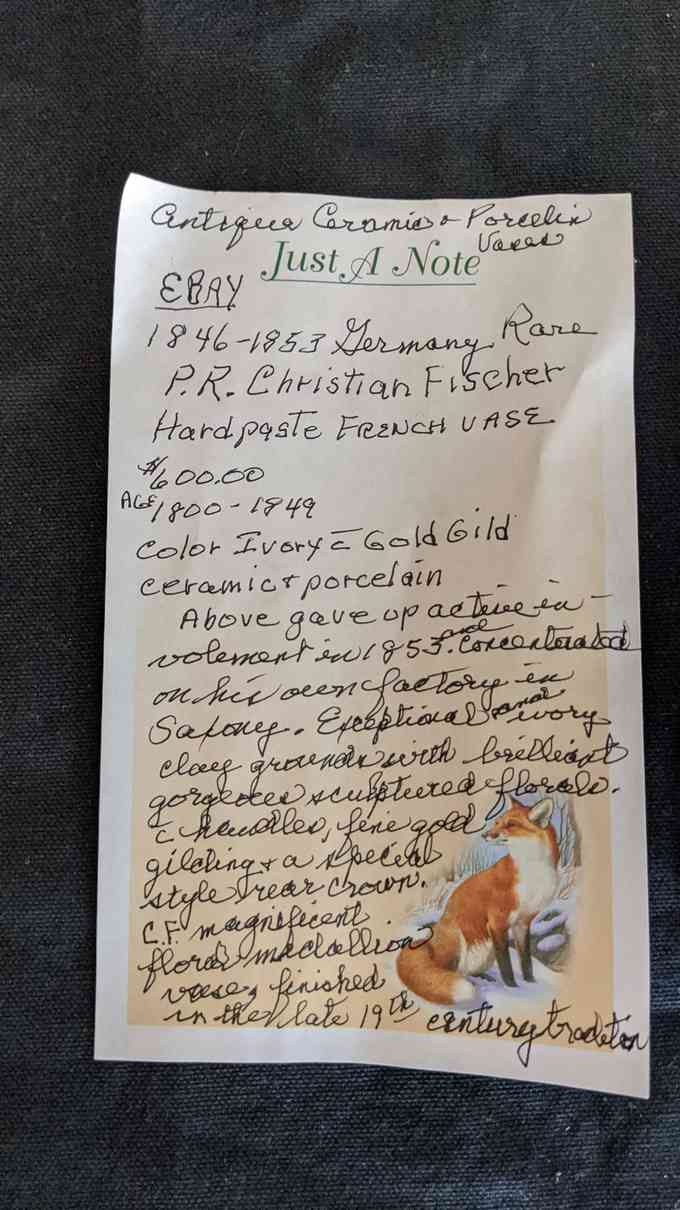 Antique Ceramic & Porcelin
Vases
Just A Note
EBAY
1846-1853 Germany Rare
P.R. Christian Fischer
Hardpaste FRENCH VASE
$600.00
AGE 1800-1849
Color Ivory c̄ Gold Gild
ceramic & porcelain
Above gave up active in-
volement in 1853. and concentrated
on his own factory in
Saxony. Exceptional and ivory
clay grounds with brilliant
gorgeous sculptured florals.
c̄ handles, fine gold
gilding & a special
style rear crown.
C.F. magnificent
floral medallion
vase, finished
in the late 19th century tradition